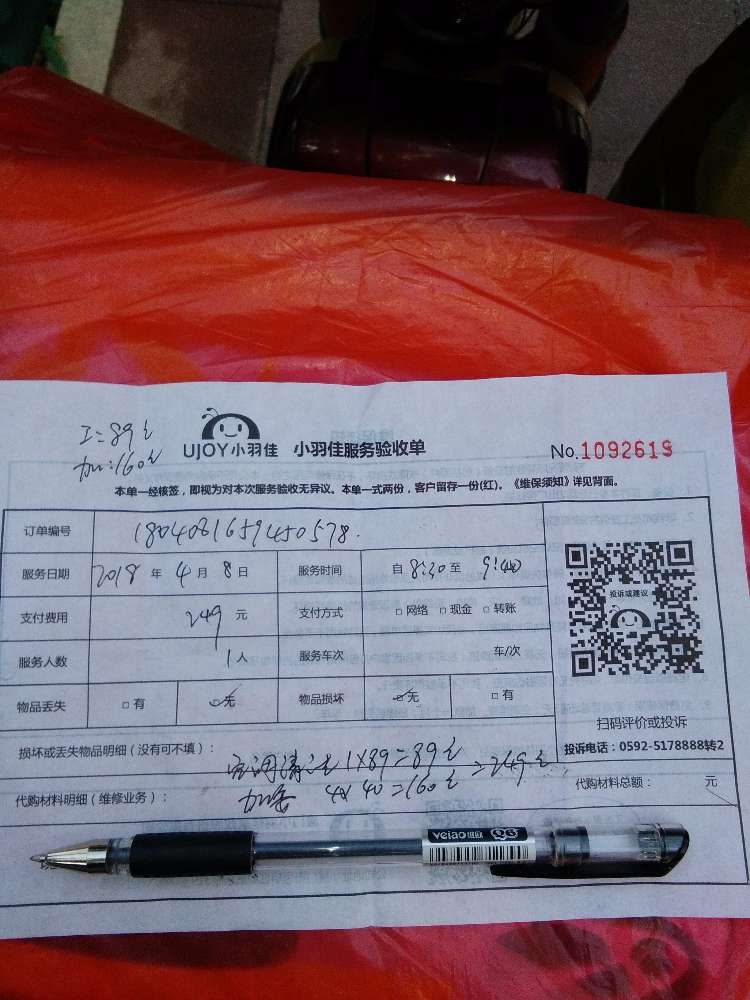 工=89元
加:160元
UJOY小羽佳 小羽佳服务验收单 No.1092619
本单一经核签，即视为对本次服务验收无异议。本单一式两份，客户留存一份(红)。《维保须知》详见背面。
订单编号 1804081659450578.
服务日期 2018 年 4 月 8 日 服务时间 自 8:30 至 9:40
支付费用 249 元 支付方式 □网络 □现金 □转账
服务人数 1人 服务车次 车/次
物品丢失 □有 □无 物品损坏 □无 □有
投诉或建议
扫码评价或投诉
投诉电话：0592-5178888转2
损坏或丢失物品明细（没有可不填）：
空调清洗 1X89=89元
代购材料明细（维修业务）： 4X40=160元 =249元
代购材料总额： 元
veiao 唯欧 Q6